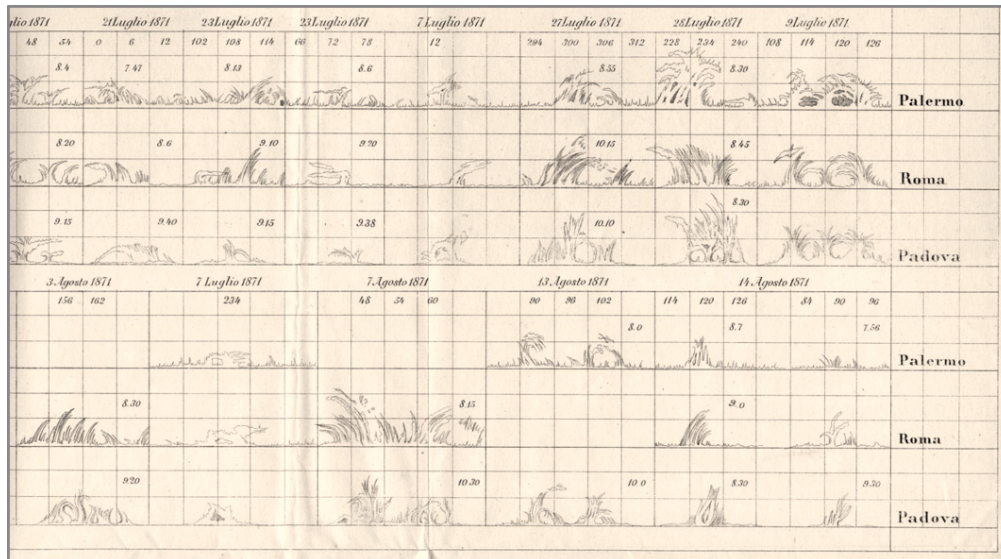 lio 1871 21 Luglio 1871 23 Luglio 1871 23 Luglio 1871 7 Luglio 1871 27 Luglio 1871 28 Luglio 1871 9 Luglio 1871.
48 54 0 6 12 102 108 114 66 72 78 12 294 300 306 312 228 234 240 108 114 120 126
8.4 7.47 8.13 8.6 8.55 8.30
Palermo
8.20 8.6 9.10 9.20 10.15 8.45
Roma
8.30
9.15 9.40 9.15 9.38 10.10
Padova
3 Agosto 1871 7 Luglio 1871 7 Agosto 1871 13 Agosto 1871 14 Agosto 1871
156 162 234 48 54 60 90 96 102 114 120 126 84 90 96
8.0 8.7 7.56
Palermo
8.30 8.15 9.0
Roma
9.20 10.30 10.0 8.30 9.30
Padova